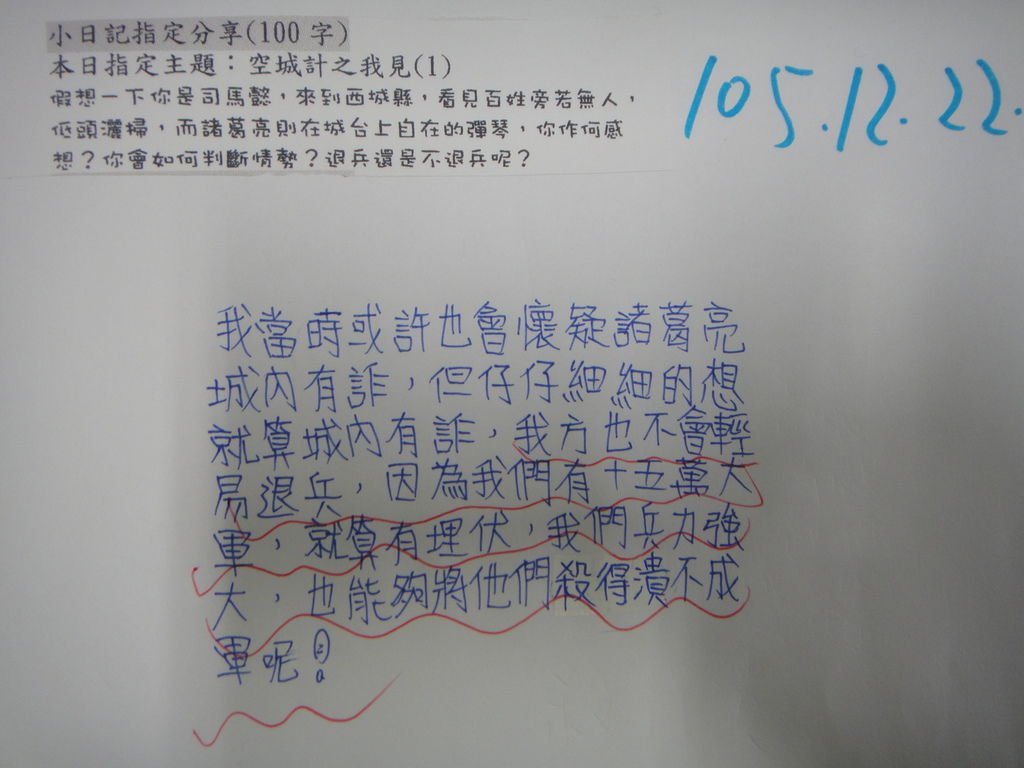 小日記指定分享(100字)
本日指定主題：空城計之我見(1)
假想一下你是司馬懿，來到西城縣，看見百姓旁若無人，
低頭灑掃，而諸葛亮則在城台上自在的彈琴，你作何感
想？你會如何判斷情勢？退兵還是不退兵呢？
105.12.22.
我當時或許也會懷疑諸葛亮
城內有詐，但仔仔細細的想
就算城內有詐，我方也不會輕
易退兵，因為我們有十五萬大
軍，就算有埋伏，我們兵力強
大，也能夠將他們殺得潰不成
軍呢！